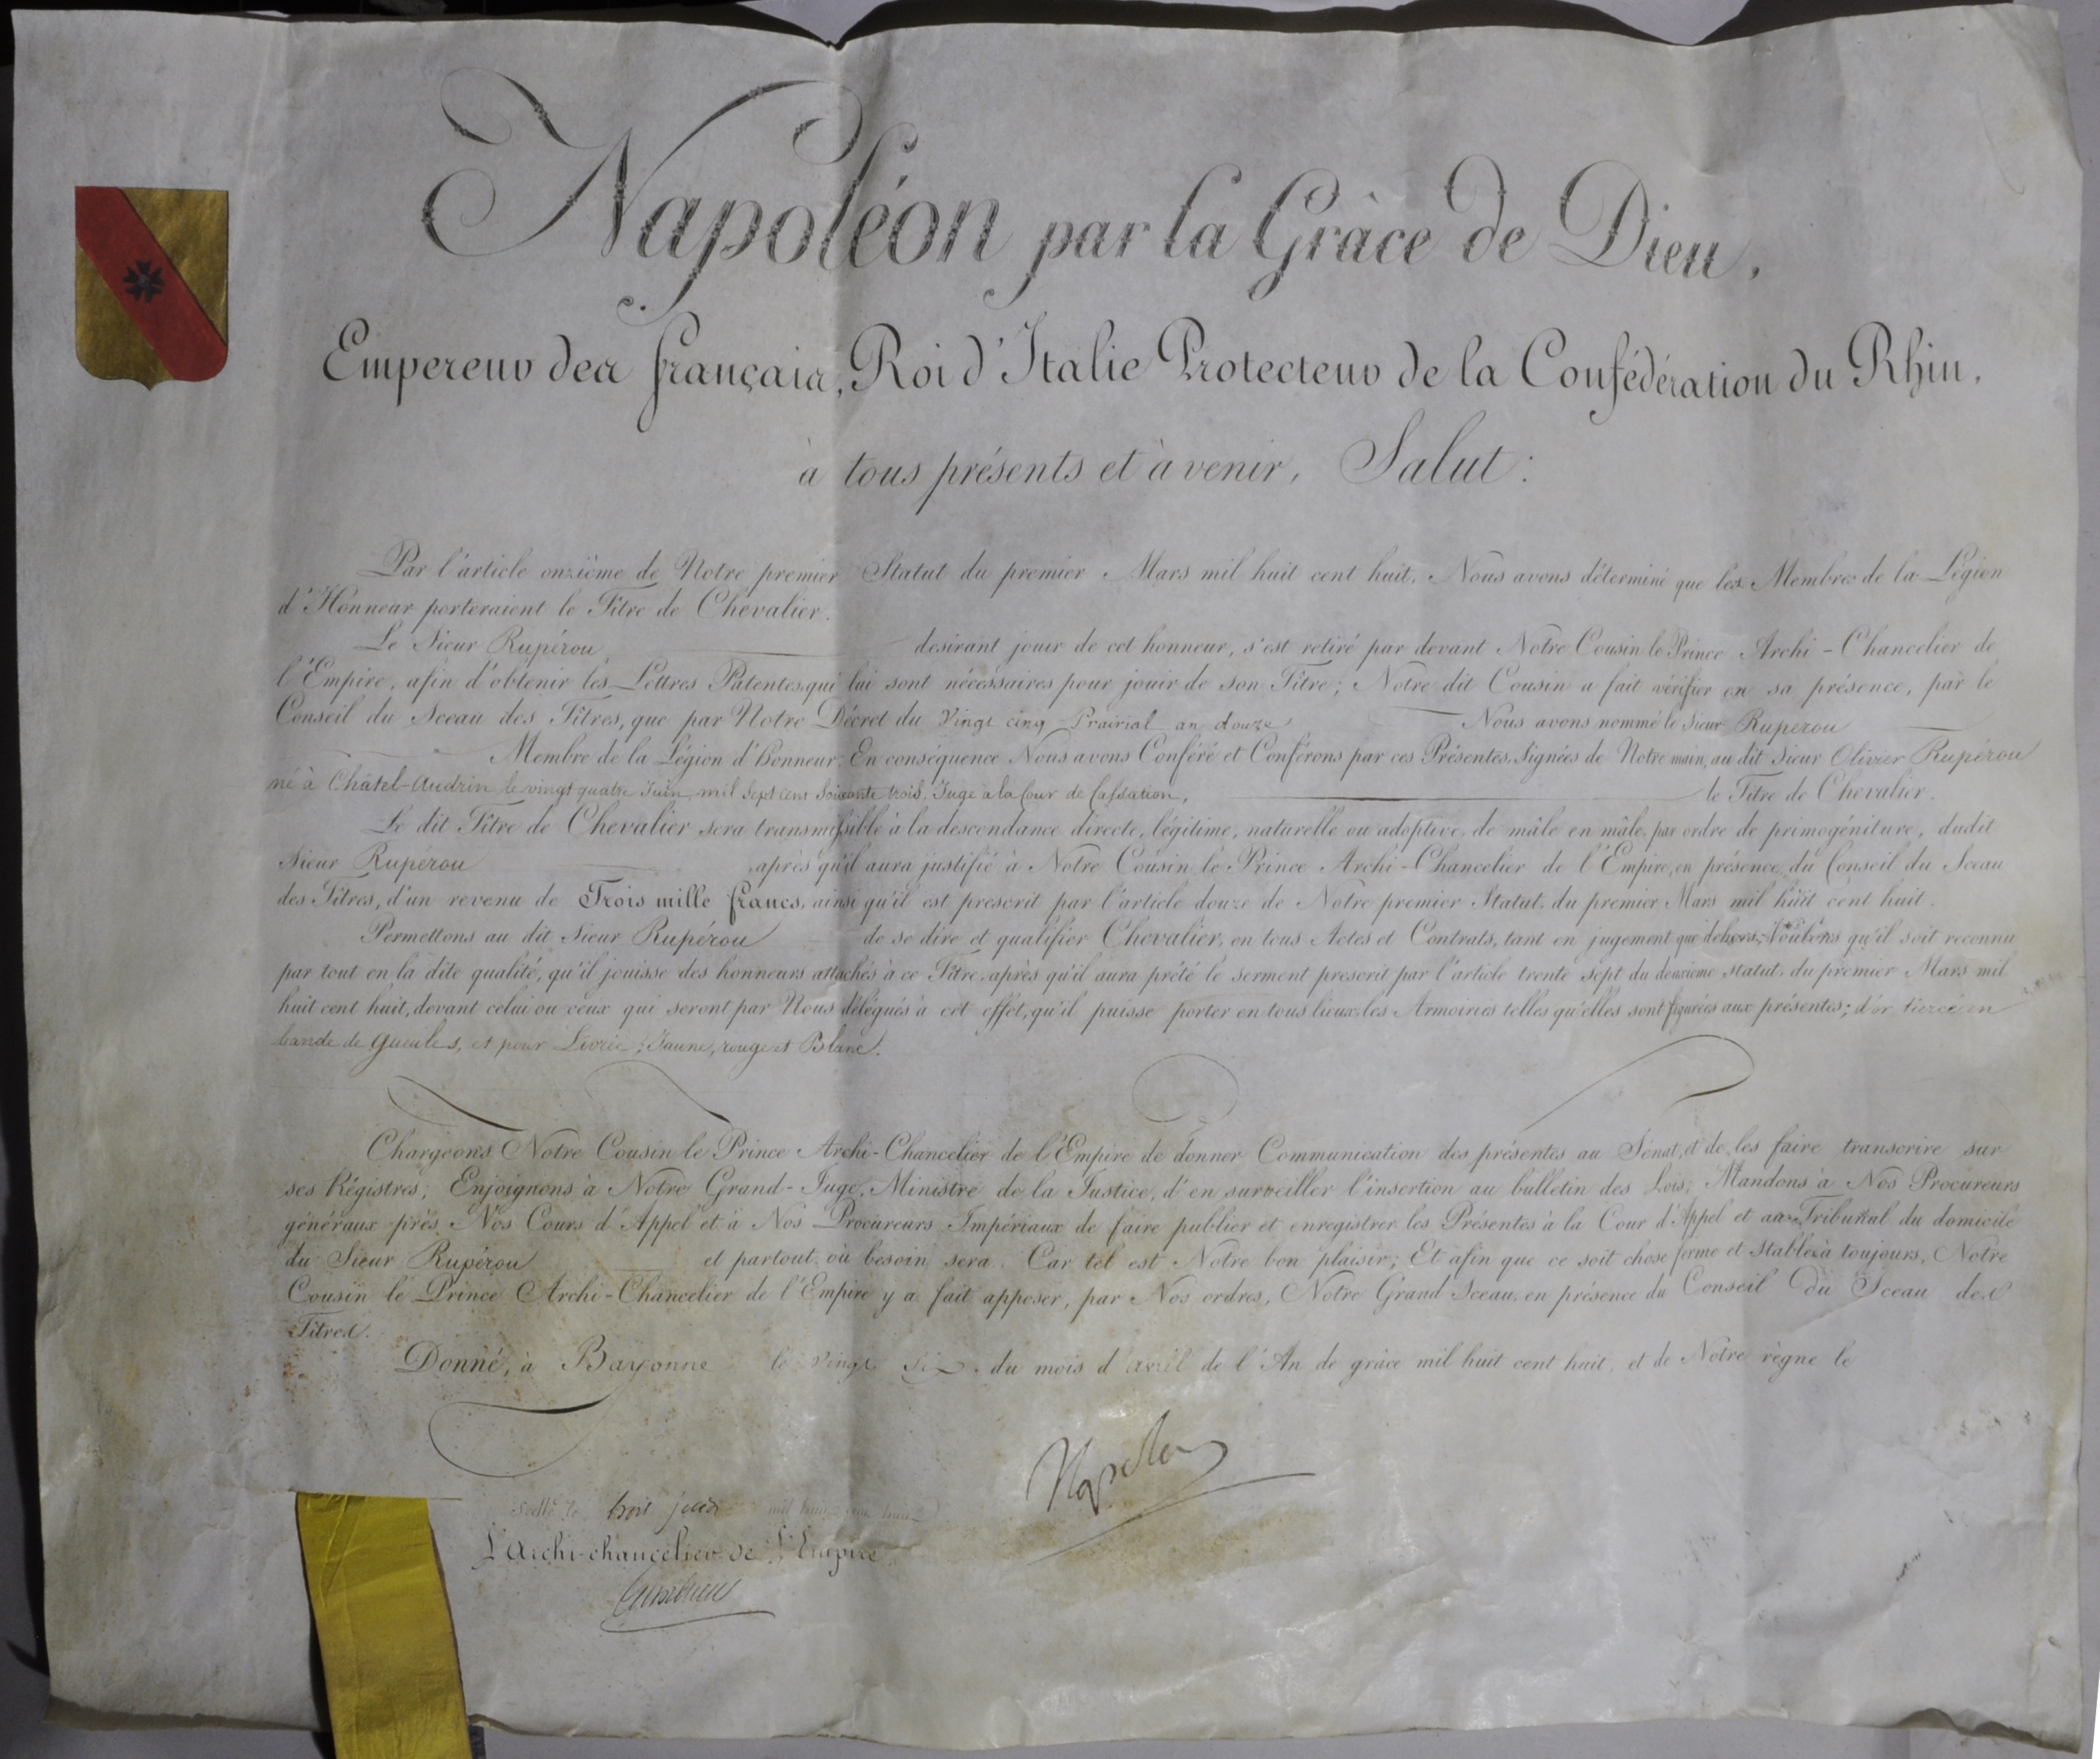 Napoléon par la Grâce de Dieu,
Empereur des français, Roi d'Italie Protecteur de la Confédération du Rhin,
à tous présents et à venir, Salut :
Par l'article onzième de Notre premier Statut du premier Mars mil huit cent huit, Nous avons déterminé que les Membres de la Légion
d'Honneur porteraient le Titre de Chevalier.
Le Sieur Rupérou desirant jouir de cet honneur, s'est retiré par devant Notre Cousin le Prince Archi-Chancelier de
l'Empire, afin d'obtenir les Lettres Patentes, qui lui sont nécessaires pour jouir de son Titre; Notre dit Cousin a fait vérifier en sa présence, par le
Conseil du Sceau des Titres, que par Notre Décret du Vingt cinq Prairial an douze Nous avons nommé le Sieur Rupérou
Membre de la Légion d'honneur. En conséquence Nous avons Conféré et Conférons par ces Présentes, Signées de Notre main, au dit Sieur Olivier Rupérou
né à Châtel-Audrin le vingt quatre Juin mil sept cent soixante trois, Juge à la Cour de Cassation, le Titre de Chevalier.
Le dit Titre de Chevalier sera transmissible à la descendance directe, légitime, naturelle ou adoptive, de mâle en mâle, par ordre de primogéniture, dudit
Sieur Rupérou après qu'il aura justifié à Notre Cousin le Prince Archi-Chancelier de l'Empire, en présence du Conseil du Sceau
des Titres, d'un revenu de Trois mille francs, ainsi qu'il est prescrit par l'article douze de Notre premier Statut, du premier Mars mil huit cent huit.
Permettons au dit Sieur Rupérou de se dire et qualifier Chevalier, en tous Actes et Contrats, tant en jugement que dehors; Voulons qu'il soit reconnu
par tout en la dite qualité, qu'il jouisse des honneurs attachés à ce Titre, après qu'il aura prêté le serment prescrit par l'article trente sept du deuxième statut, du premier Mars mil
huit cent huit, devant celui ou ceux qui seront par Nous délégués à cet effet, qu'il puisse porter en tous lieux, les Armoiries telles qu'elles sont figurées aux présentes; d'or tiercé en
bande de gueules, et pour Livrée; Jaune, rouge et Blanc.
Chargeons Notre Cousin le Prince Archi-Chancelier de l'Empire de donner Communication des présentes au Sénat, et de les faire transcrire sur
ses Régistres; Enjoignons à Notre Grand-Juge, Ministre de la Justice, d'en surveiller l'insertion au bulletin des Lois; Mandons à Nos Procureurs
généraux près Nos Cours d'Appel et à Nos Procureurs Impériaux de faire publier et enregistrer les Présentes à la Cour d'Appel et au Tribunal du domicile
du Sieur Rupérou et partout où besoin sera. Car tel est Notre bon plaisir; Et afin que ce soit chose ferme et stable à toujours, Notre
Cousin le Prince Archi-Chancelier de l'Empire y a fait apposer, par Nos ordres, Notre Grand Sceau, en présence du Conseil du Sceau des
Titres.
Donné, à Bayonne le vingt six du mois d'avril de l'An de grâce mil huit cent huit, et de Notre règne le
Napoleon
Scellé le trois juin mil huit cent huit
L'Archi-chancelier de l'Empire
Cambaceres